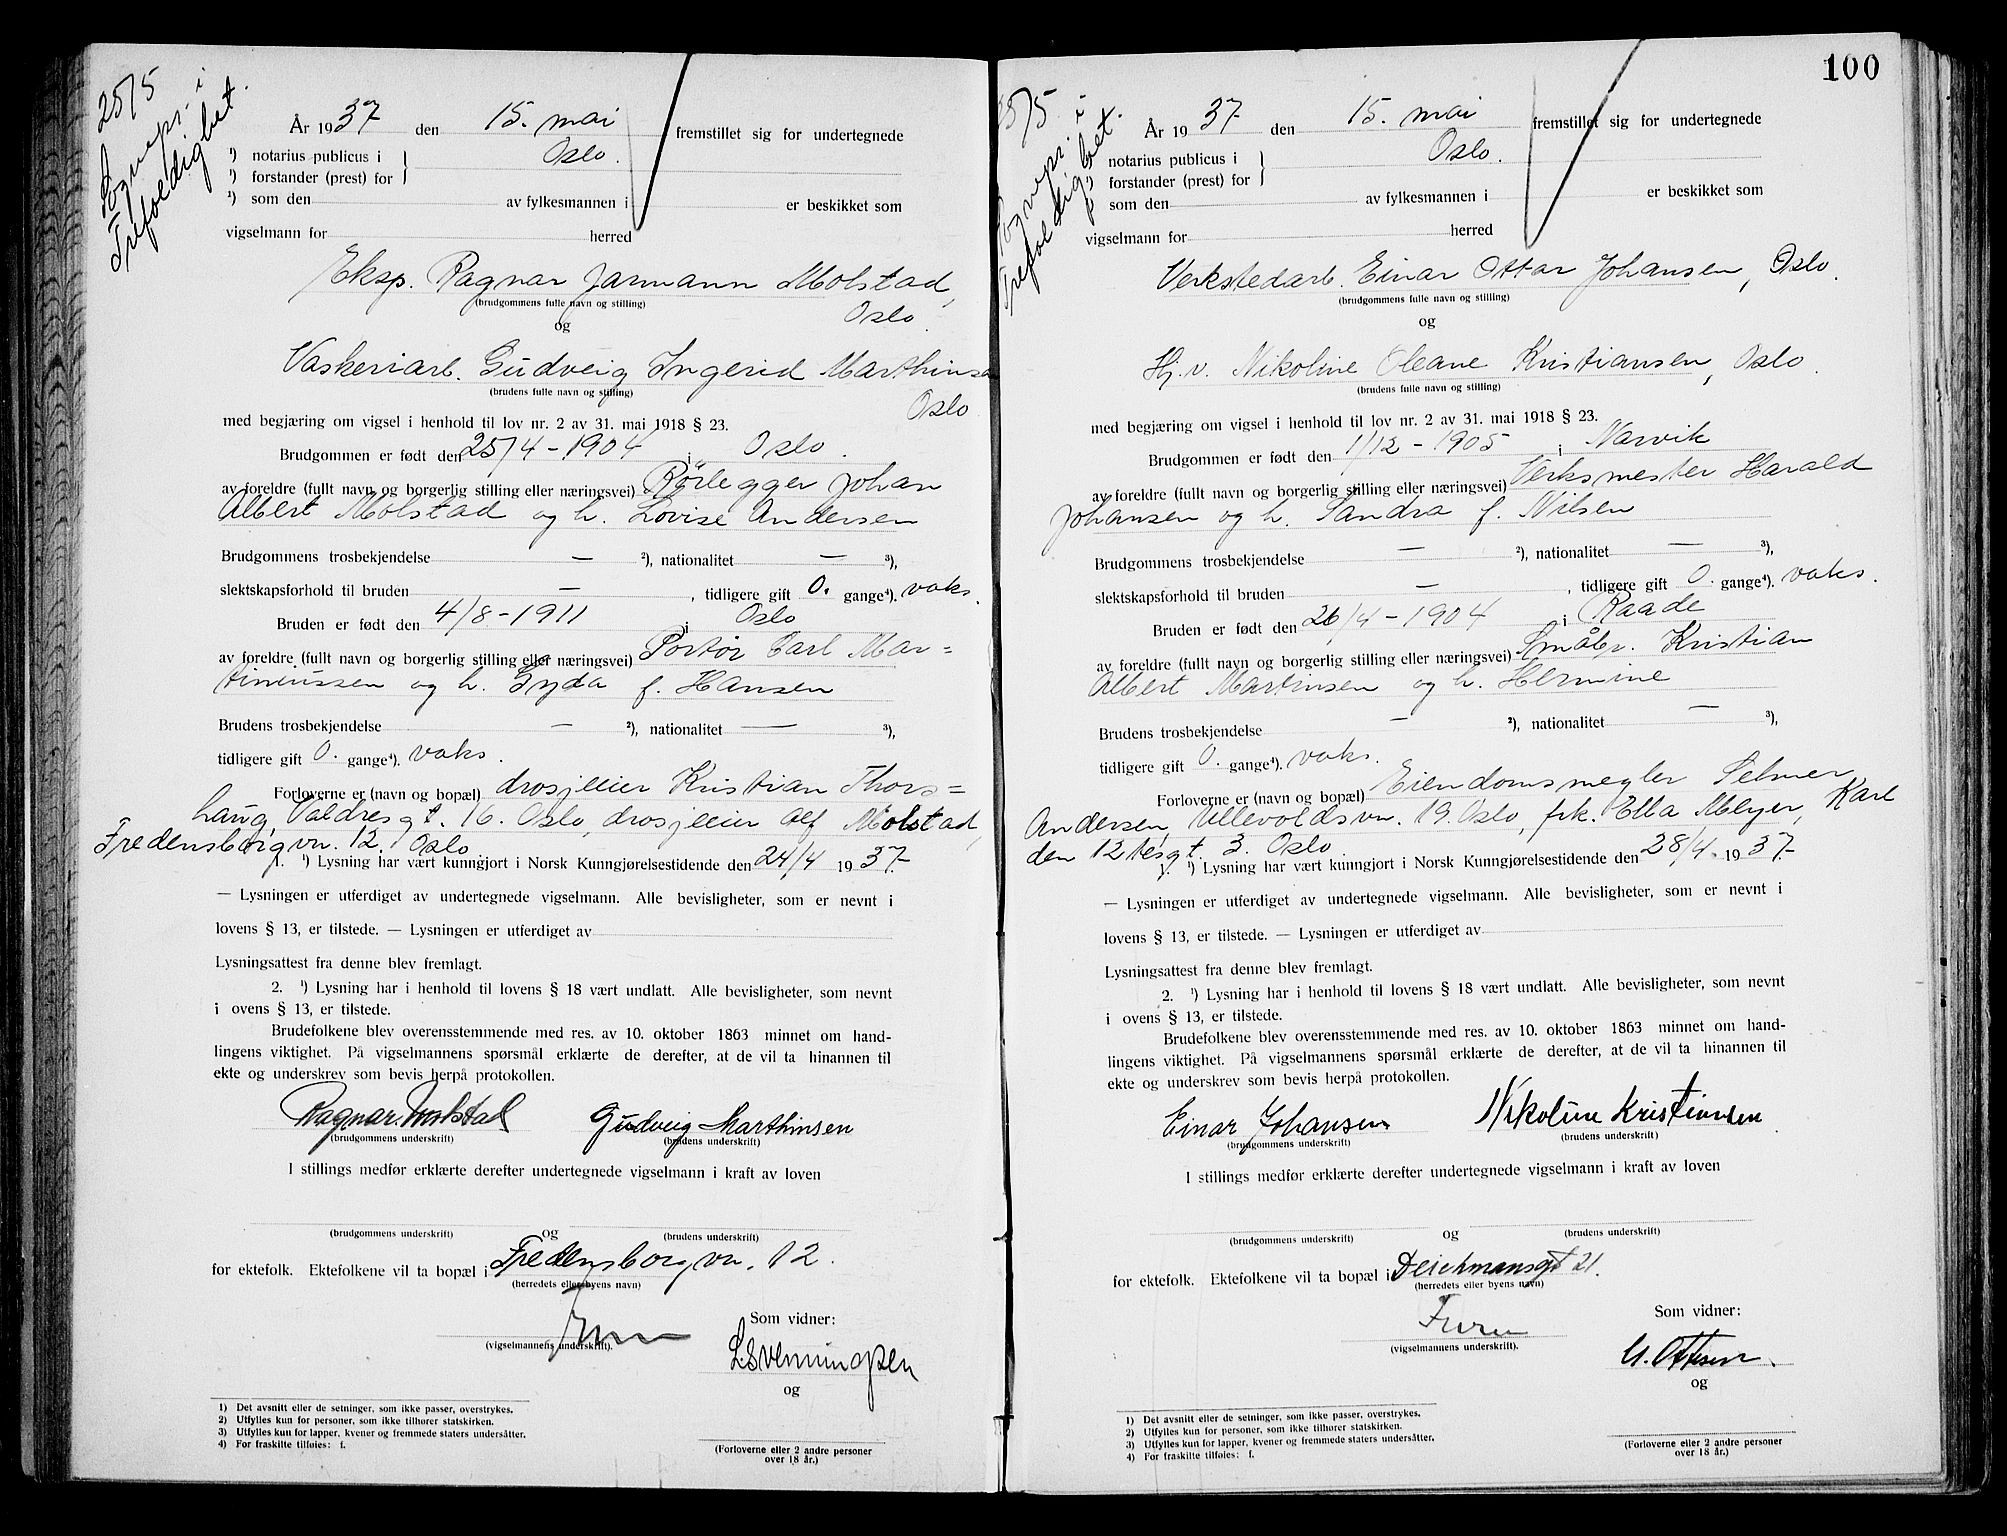 25/5
Sognepr. i
Trefoldighet.
År 1937 den 15. mai fremstillet sig for undertegnede
¹) notarius publicus i Oslo.
¹) forstander (prest) for
¹) som den av fylkesmannen i er beskikket som
vigselmann for herred
Eksp. Ragnar Jarmann Molstad,
(brudgommens fulle navn og stilling)
Oslo.
og
Vaskeriarb. Gudveig Ingerid Marthinsen
(brudens fulle navn og stilling)
Oslo
med begjæring om vigsel i henhold til lov nr. 2 av 31. mai 1918 § 23.
Brudgommen er født den 25/4-1904 i Oslo.
av foreldre (fullt navn og borgerlig stilling eller næringsvei) Rørlegger Johan
Albert Molstad og h. Lovise Andersen
Brudgommens trosbekjendelse — ²), nationalitet — ³),
slektskapsforhold til bruden — , tidligere gift 0. gange⁴). vaks.
Bruden er født den 4/8-1911 i Oslo
av foreldre (fullt navn og borgerlig stilling eller næringsvei) Portør Carl Mar=
tiniussen og h. Gyda f. Hansen
Brudens trosbekjendelse — ²), nationalitet — ³),
tidligere gift 0. gange⁴). vaks.
Forloverne er (navn og bopæl) drosjeeier Kristian Thors=
haug, Valdresgt. 16. Oslo, drosjeeier Alf Molstad,
Fredensborgvn. 12. Oslo
1. ¹) Lysning har vært kunngjort i Norsk Kunngjørelsestidende den 24/4 1937.
— Lysningen er utferdiget av undertegnede vigselmann. Alle bevisligheter, som er nevnt i
lovens § 13, er tilstede. — Lysningen er utferdiget av
Lysningsattest fra denne blev fremlagt.
2. ¹) Lysning har i henhold til lovens § 18 vært undlatt. Alle bevisligheter, som nevnt
i ovens § 13, er tilstede.
Brudefolkene blev overensstemmende med res. av 10. oktober 1863 minnet om hand-
lingens viktighet. På vigselmannens spørsmål erklærte de derefter, at de vil ta hinannen til
ekte og underskrev som bevis herpå protokollen.
Ragnar Molstad Gudveig Marthinsen
(brudgommens underskrift) (brudens underskrift)
I stillings medfør erklærte derefter undertegnede vigselmann i kraft av loven
og
(brudgommens underskrift) (brudens underskrift)
for ektefolk. Ektefolkene vil ta bopæl i Fredensborgvn. 12.
(herredets eller byens navn)
Som vidner:
(vigselmannens underskrift).
og
1) Det avsnitt eller de setninger, som ikke passer, overstrykes.
2) Utfylles kun for personer, som ikke tilhører statskirken.
3) Utfylles kun for lapper, kvener og fremmede staters undersåtter.
4) For fraskilte tilføies: f.
(Forloverne eller 2 andre personer
over 18 år.)
100
25/5
Sognepr. i
Trefoldighet.
År 1937 den 15. mai fremstillet sig for undertegnede
notarius publicus i Oslo.
¹) forstander (prest) for
¹) som den av fylkesmannen i er beskikket som
vigselmann for herred
Verkstedarb. Einar Ottar Johansen, Oslo.
(brudgommens fulle navn og stilling)
og
Hj.v. Nikoline Oleane Kristiansen, Oslo.
(brudens fulle navn og stilling)
med begjæring om vigsel i henhold til lov nr. 2 av 31. mai 1918 § 23.
Brudgommen er født den 1/12-1905 i Narvik
av foreldre (fullt navn og borgerlig stilling eller næringsvei) Verksmester Harald
Johansen og h. Sandra f. Nilsen
Brudgommens trosbekjendelse — ²), nationalitet — ³),
slektskapsforhold til bruden — , tidligere gift 0. gange⁴). vaks.
Bruden er født den 26/4-1904 i Raade
av foreldre (fullt navn og borgerlig stilling eller næringsvei) Småbr. Kristian
Albert Martinsen og h. Hermine
Brudens trosbekjendelse — ²), nationalitet — ³),
tidligere gift 0. gange⁴). vaks.
Forloverne er (navn og bopæl) Eiendomsmegler Selmer
Andersen, Ullevoldsvn. 19. Oslo, frk. Ella Meyer, Karl
den 12tesgt. 3. Oslo
1. ¹) Lysning har vært kunngjort i Norsk Kunngjørelsestidende den 28/4. 1937.
— Lysningen er utferdiget av undertegnede vigselmann. Alle bevisligheter, som er nevnt i
lovens § 13, er tilstede. — Lysningen er utferdiget av
Lysningsattest fra denne blev fremlagt.
2. ¹) Lysning har i henhold til lovens § 18 vært undlatt. Alle bevisligheter, som nevnt
i ovens § 13, er tilstede.
Brudefolkene blev overensstemmende med res. av 10. oktober 1863 minnet om hand-
lingens viktighet. På vigselmannens spørsmål erklærte de derefter, at de vil ta hinannen til
ekte og underskrev som bevis herpå protokollen.
Einar Johansen Nikoline Kristiansen
(brudgommens underskrift) (brudens underskrift)
I stillings medfør erklærte derefter undertegnede vigselmann i kraft av loven
og
(brudgommens underskrift) (brudens underskrift)
for ektefolk. Ektefolkene vil ta bopæl i Deichmansgt 21.
(herredets eller byens navn)
Som vidner:
(vigselmannens underskrift).
Ottesen.
og
1) Det avsnitt eller de setninger, som ikke passer, overstrykes.
2) Utfylles kun for personer, som ikke tilhører statskirken.
3) Utfylles kun for lapper, kvener og fremmede staters undersåtter.
4) For fraskilte tilføies: f.
(Forloverne eller 2 andre personer
over 18 år.)